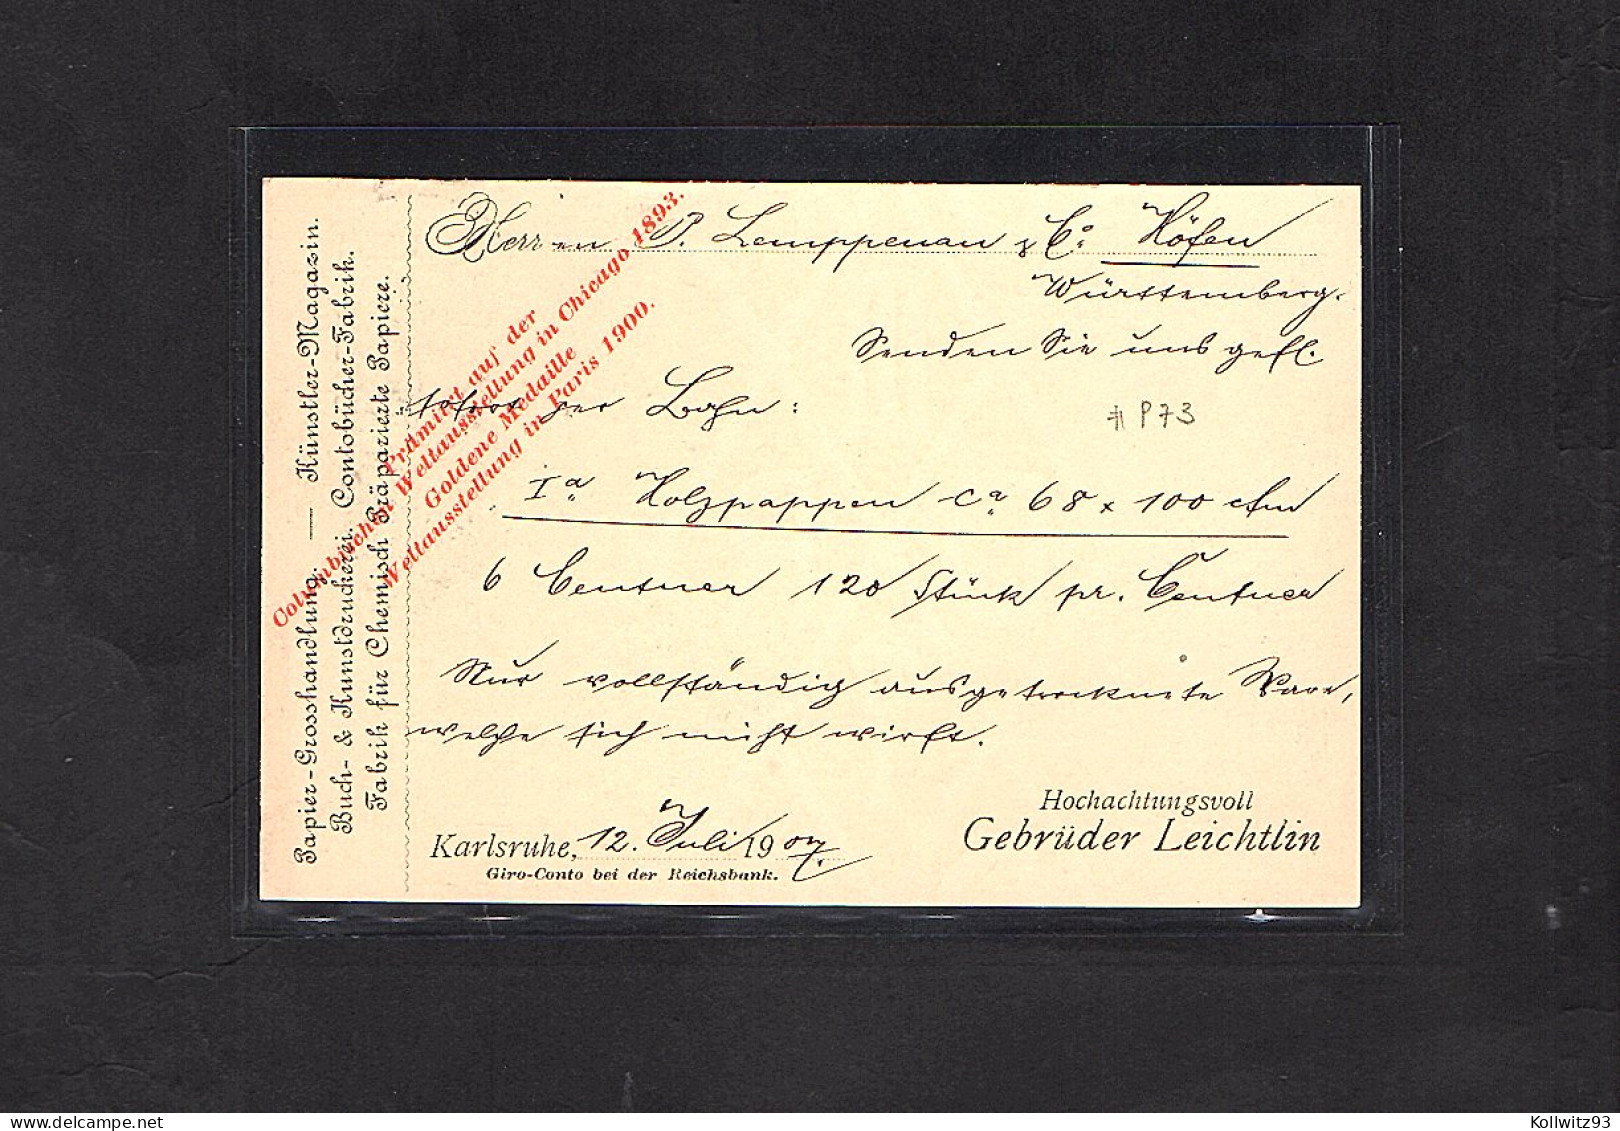 Papier-Grosshandlung. — Künstler-Magazin.
Buch- & Kunstdruckerei. Contobücher-Fabrik.
Fabrik für Chemisch Präparierte Papiere.
Prämiirt auf der
Columbischen Weltausstellung in Chicago 1893.
Goldene Medaille
Weltausstellung in Paris 1900.
Herren P. Lemppenau & Co. Höfen
Württemberg.
Senden Sie uns gefl.
sofort per Bahn:
# P73
Ia Holzpappen ca 68 x 100 ctm
6 Centner 120 Stück pr. Centner
Nur vollständig ausgetrocknete Ware,
welche sich nicht wirft.
Hochachtungsvoll
Gebrüder Leichtlin
Karlsruhe, 12. Juli 1907.
Giro-Conto bei der Reichsbank.
Kollwitz93